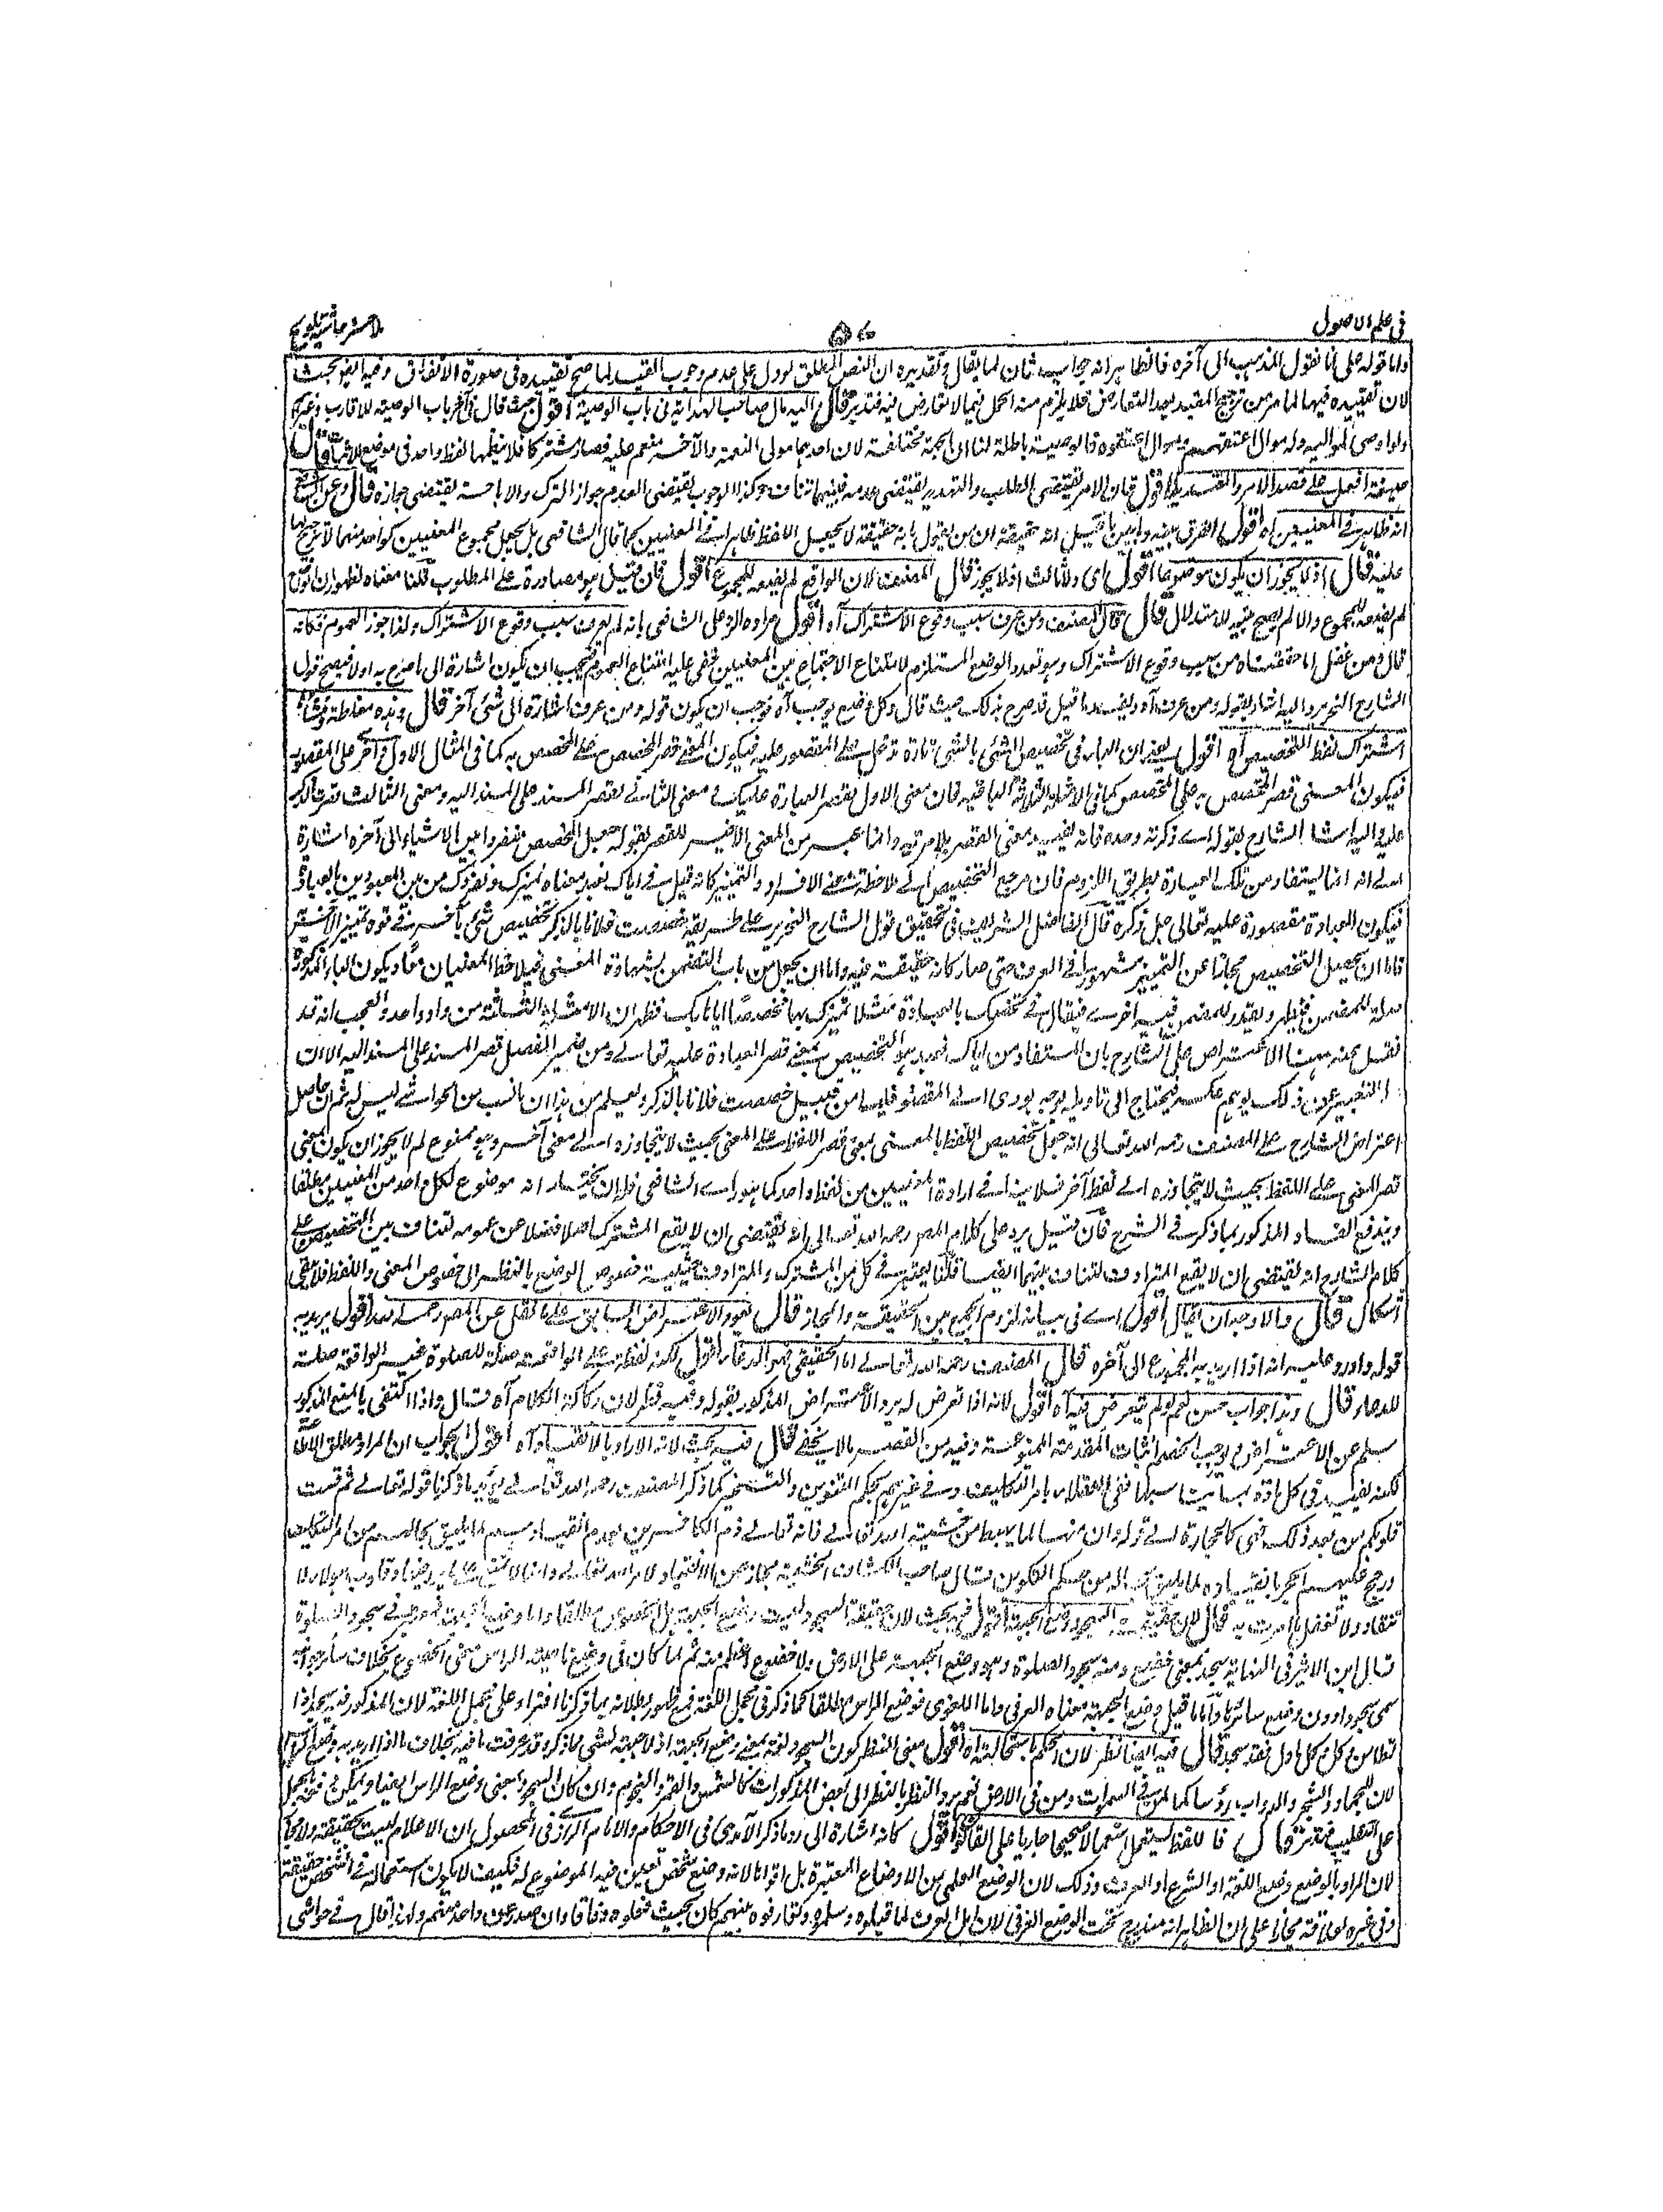 في علم الاصول
ملا خسرو حاشية تلويح
واما قوله على انا نقول المذهب الى آخره فالظاهر انه جواب ثان لما يقال وتقديره ان النص المطلق لو دل على عدم وجوب القيد لما صح تقييده في صورة الاتفاق وفيه ايضا بحث
لان تقييده فيها لما مر من ترجيح المقيد بعد التعارض فلا يلزم منه الحمل فيما لا تعارض فيه فتدبر قال اليه مال صاحب الهداية في باب الوصية اقول حيث قال في آخر باب الوصية للاقارب وغيرهم
ولو اوصى لمواليه وله موال اعتقهم وموال اعتقوه فالوصية باطلة لنا ان الجهة مختلفة لان احدهما مولى النعمة والآخر منعم عليه فصار مشتركا فلا ينتظمهما لفظ واحد في موضع الاثبات قال
صيغة افعل على قصد الامر والتهديد اقول فان الامر يقتضي الطلب والتهديد يقتضي عدمه فبينهما تناف وكذا الوجوب يقتضي العدم جواز الترك والاباحة يقتضي جوازه قال وعن الشافعي
انه ظاهر في المعنيين اه اقول الفرق بينه وبين ما قيل انه حقيقة ان من يقول بانه حقيقة لا يجعل اللفظ ظاهرا في المعنيين كما قال الشافعي بل يجعل مجموع المعنيين كواحد منهما لا ترجيح لها
عليه قال اذ لا يجوز ان يكون موضوعا اقول اي ولا ثالث اذ لا يجوز قال المصنف لان الواقع لم يضعه للمجموع اقول فان قيل هو مصادرة على المطلوب قلنا معناه لظهور ان الواضع
لم يضعه للمجموع والا لم يصح فيه الاستدلال قال قال المصنف ومن عرف سبب وقوع الاشتراك آه اقول مراده الرد على الشافعي بانه لم يعرف سبب وقوع الاشتراك ولذا جوز العموم فكانه
قال ومن غفل عما حققناه من سبب وقوع الاشتراك وهو تعدد الوضع المستلزم لامتناع الاجتماع بين المعنيين خفي عليه امتناع العموم فيجب ان يكون اشارة الى ما صرح به اولا فيصح قول
الشارح النحرير واليه اشار بقوله ومن عرف آه وليفسد ما قيل قد صرح بذلك حيث قال وكل وضع يوجب آه فوجب ان يكون قوله ومن عرف اشارة الى شئ آخر قال وهذه مغلطة ومنشأها
اشتراك لفظ التخصيص آه اقول يعني ان الباء في تخصيص الشئ بالشئ تارة تدخل على المقصور عليه فيكون المعنى قصر المخصص على المخصص به كما في المثال الاول واخرى على المقصور
فيكون المعنى قصر المخصص به على المخصص كما في الامثلة الثلاثة الباقية فان معنى الاول نقصر العبادة عليك ومعنى الثاني لقصر المسند على المسند اليه ومعنى الثالث
عليه واليه اشار الشارح بقوله اي ذكرته وحده فانه يفيد معنى القصر بلا مرية وانما عبر عن المعنى الاخير للقصر بقوله جعل المخصص منفردا بين الاشياء الى آخره اشارة
الى انه انما يستفاد من تلك العبارة بطريق اللزوم فان مرجع التخصيص الى ملاحظة معنى الافراد والتمييز كانه قيل في اياك نعبد معناه نميزك ونفردك من بين المعبودين بالعبادة
فيكون العبادة مقصورة عليه تعالى جل ذكره قال الفاضل الشريف في تحقيق قول الشارح النحرير على طريقة خصصت فلانا بالذكر تخصيص شئ بآخر في قوة تمييز الآخر به
فاما ان يجعل التخصيص مجازا عن التمييز مشهورا في العرف حتى صار كانه حقيقة فيه واما ان يجعل من باب التضمين بشهادة المعنى فيلاحظ المعنيان معا ويكون الباء المذكورة
صلة للمضمن فيظهر ويقدر للمضمن فيه اخرى فيقال في نخصك بالعبادة مثلا نميزك بها مخصصا اياها بك فظهر ان الامثلة الثلاثة من واد واحد والعجب انه قد
نقل عنه ههنا الاعتراض على الشارح بان المستفاد من اياك نعبد هو التخصيص بمعنى قصر العبادة عليه تعالى ومن ضمير الفصل قصر المسند على المسند اليه الا ان
التعبير عن ذلك يوهم عكسه فيحتاج الى تاويل يوجه يودي الى المقصود فليسا من قبيل خصصت فلانا بالذكر وليعلم من هذا ان ما نسب من الحواشي ليس له ثم ان حاصل
اعتراض الشارح على المصنف رحمه الله تعالى انه جعل تخصيص اللفظ بالمعنى بمعنى قصر اللفظ على المعنى بحيث لا يتجاوزه الى معنى آخر وهو ممنوع لم لا يجوز ان يكون بمعنى
قصر المعنى على اللفظ بحيث لا يتجاوزه الى لفظ آخر فلا ينافي ارادة المعنيين من لفظ واحد كما هو راي الشافعي فله ان يختار انه موضوع لكل واحد من المعنيين مطلقا
ويندفع الفساد المذكور بما ذكر في الشرح فان قيل يرد على كلام المص رحمه الله تعالى انه يقتضي ان لا يقع المشترك اصلا فضلا عن عمومه لتناف بين التخصيصين وعلى
كلام الشارح انه يقتضي ان لا يقع المترادف لتناف بينهما ايضا قلنا يعتبر في كل من المشترك والمترادف حيثية خصوص الوضع بالنظر الى خصوص المعنى واللفظ فلا يبقى
اشكال قال والاوجه ان يقال اقول اي في بيانه لزوم الجمع بين الحقيقة والمجاز قال يعود الاعتراض السابق على ما نقل عن المص رحمه الله اقول يريد به
قوله واورد عليه انه اذا اريد به المجموع الى آخره قال المصنف رحمه الله تعالى اما الحقيقي فهو الدعاء اقول لكنه لفظة على الواقعة صلة للصلوة غير الواقعة صلة
للدعاء قال وهذا جواب حسن لهم لو لم يتعرض فيه آه اقول لانه اذا تعرض له يرد الاعتراض المذكور بقوله وفيه نظر لان ركاكة الكلام آه قال واذا اكتفى بالمنع المذكور
سلم عن الاعتراض ويوجب الخصم اثبات المقدمة الممنوعة وفيه من القصر ما لا يخفى قال فيه بحث لانه الاراد بالانقياد آه اقول الجواب ان المراد مطلق الانقياد
لكنه يفيد في كل مادة
قلوبكم من بعد ذلك فهي كالحجارة الى قوله وان منها لما يهبط من خشية الله تعالى فانه تعالى ذم الكافرين بعدم انقيادهم لما يليق بحالهم من امر التكليف
ورجح عليهم الحجر بانقياده لما يليق بحاله من حكم التكوين قال صاحب الكشاف الخشية مجاز عن الانقياد لامر الله تعالى وانها لا تمتنع على ما يريد فيها وقلوب هؤلاء لا
تنقاد ولا تفعل ما امرت به قال لان حقيقة السجود وضع الجبهة اقول فيه بحث لان حقيقة السجود ليست وضع الجبهة بل الخضوع مطلقا واما وضع الجبهة فمعتبر في سجود الصلوة
قال ابن الاثير في النهاية سجد بمعنى خضع ومنه سجود الصلوة وهو وضع الجبهة على الارض ولا خضوع اعظم منه ثم لما كان في وضع ناصية الراس معنى الخضوع بخلاف سائر جوانبه
سمى سجودا دون وضع سائرها واما ما قيل وضع الجبهة معناه العرفي واما اللغوي فوضع الراس مطلقا كما ذكر في مجمل اللغة فمع ظهور بطلانه بما ذكرنا افتراء على مجمل اللغة لان المذكور فيه سجد اذا
تطامن وكل ما ذل فقد سجد قال فيه ايضا نظر لان الحكم باستحالته آه اقول مبنى النظر كون السجود لغة بمعنى وضع الجبهة اذ لا جبهة لشئ مما ذكر وقد عرفت ما فيه بخلاف ما اذا اريد به وضع الراس
لان للجماد والشجر والدواب رؤسا كما لمن في السموات ومن في الارض نعم يرد النظر بالنظر الى بعض المذكورات كالشمس والقمر والنجوم وان كان السجود بمعنى وضع الراس ايضا ويمكن دفعه بالحمل
على التغليب فتدبر قال فاللفظ يستعمل استعمالا صحيحا جاريا على القانون اقول كانه اشارة الى رد ما ذكر الآمدي في الاحكام والامام الرازي في المحصول ان الاعلام ليست بحقيقة ولا مجاز
لان المراد بالوضع وضع اللغة او الشرع او العرف وذلك لان الوضع العلمي من الاوضاع المعتبرة بل اقواها لانه وضع شخص تعين فيه الموضوع له فكيف لا يكون استعماله في الشخص حقيقة
وفي غيره لعلاقة مجازا على ان الظاهر انه مندرج تحت الوضع العرفي لان اهل العرف لما قبلوه وسلموه وتعارفوه بينهم كان بحيث فعلوه وفاقا وان صدر عن واحد منهم وما يقال في حواشي